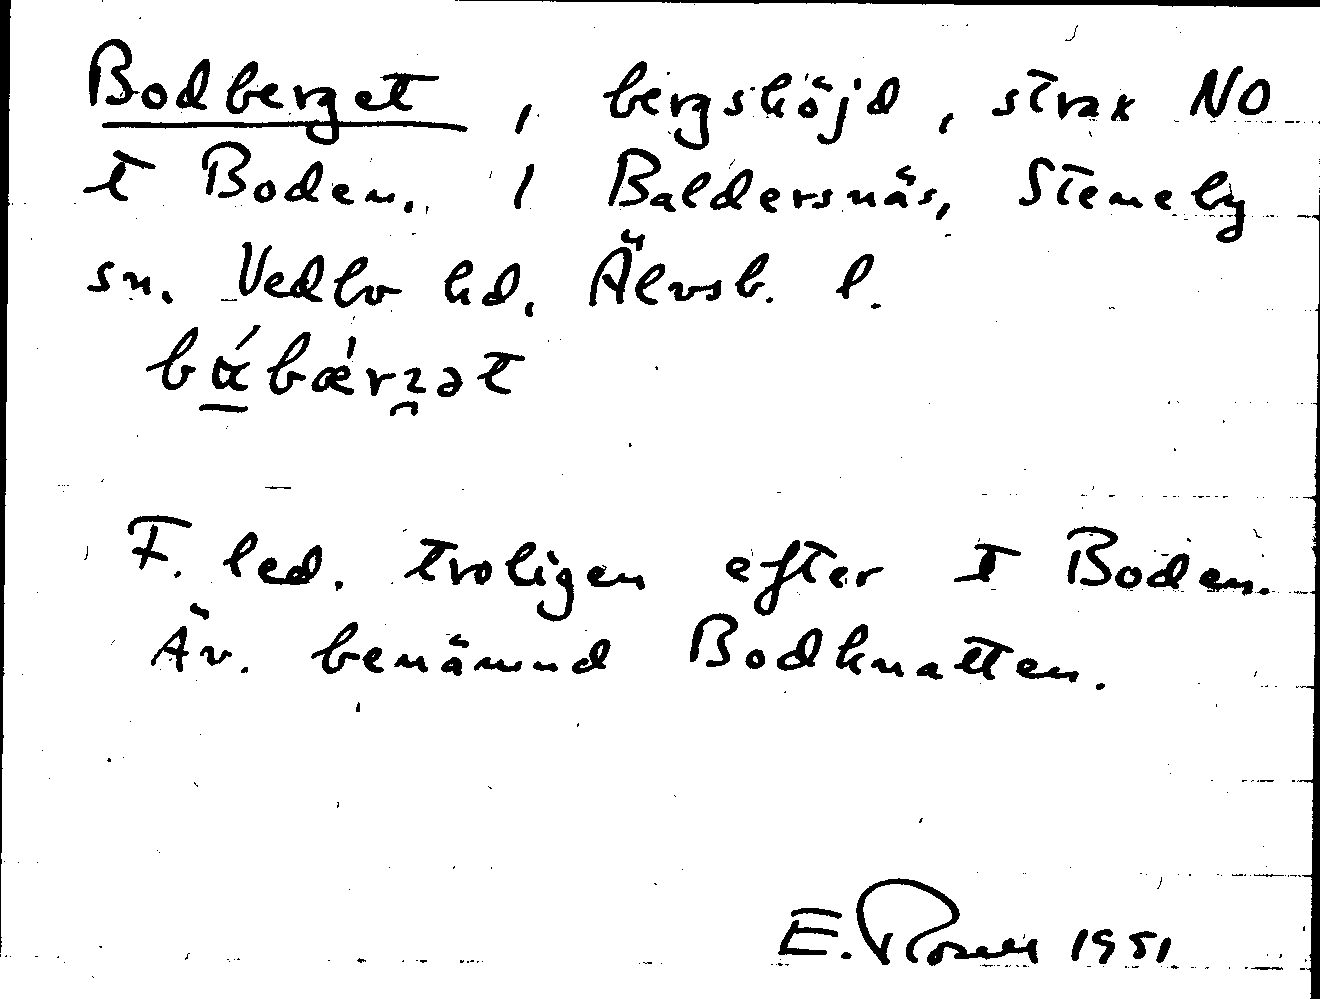 Bodberget, bergshöjd, strax NO
t Boden. I Baldersnäs, Steneby
sn. Vedbo hd. Älvsb. l.
bɑ́bǽrʒət
F. led. troligen efter t Boden.
Äv. benämnd Bodknatten.
E. 1951